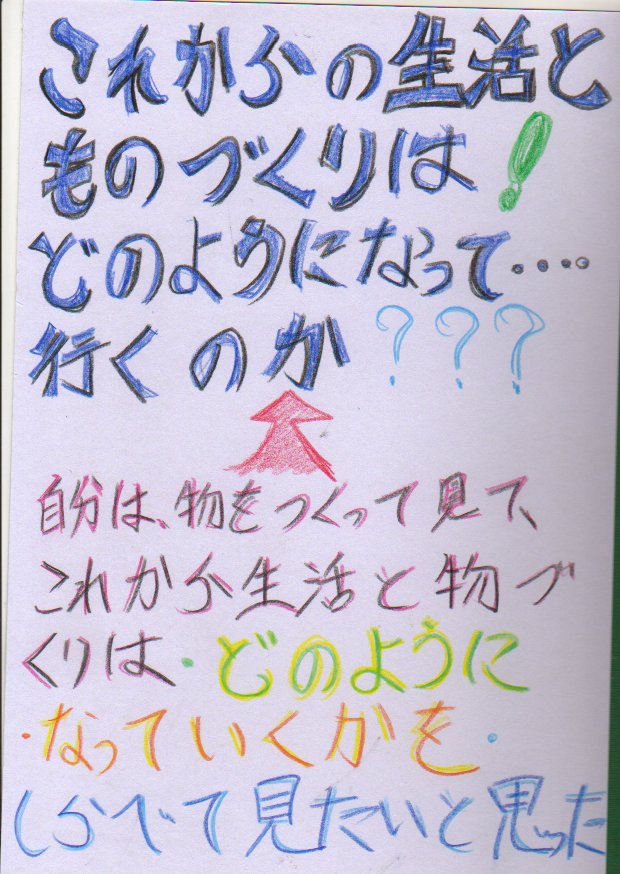 これからの生活と
ものづくりは!
どのようになって‥‥
行くのか???
自分は、物をつくって見て、
これから生活と物づ
くりは・どのように
・なっていくかを・
しらべて見たいと思った